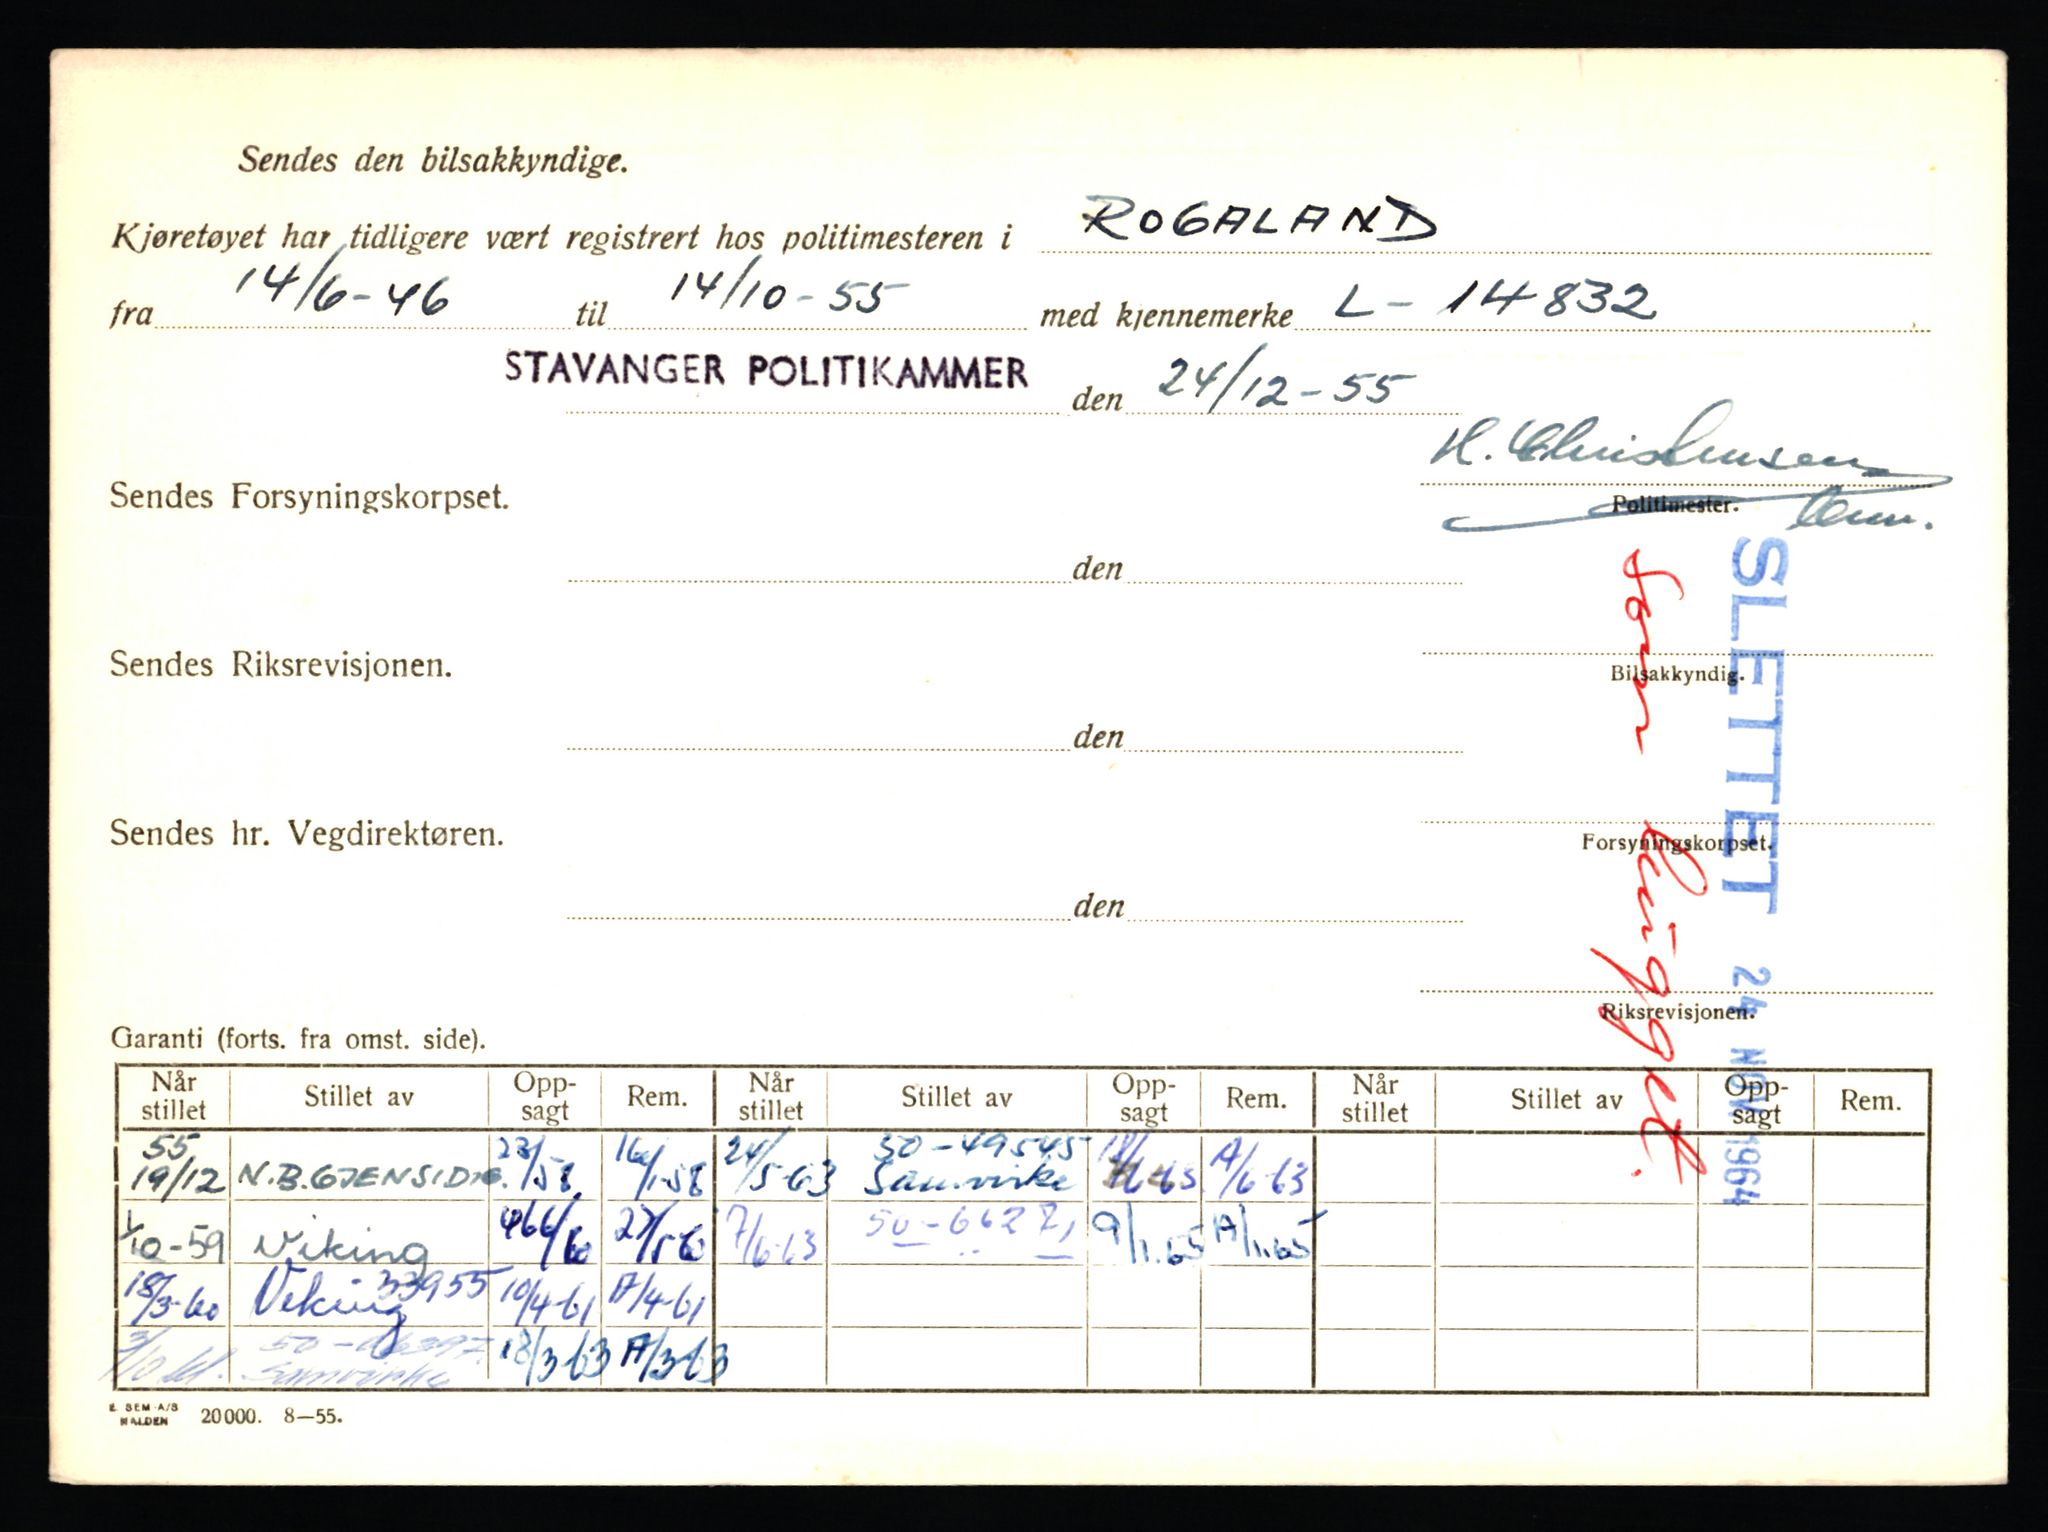 Sendes den bilsakkyndige.
Kjøretøyet har tidligere vært registrert hos politimesteren i ROGALAND
fra 14/6-46 til 14/10-55 med kjennemerke L-14832
STAVANGER POLITIKAMMER den 24/12-55
H. Christensen
Sendes Forsyningskorpset.
Politimester.
den
Sendes Riksrevisjonen.
Bilsakkyndig.
den
Sendes hr. Vegdirektøren.
Forsyningskorpset.
den
Riksrevisjonen.
SLETTET 24 NOV 1964
Som hugget.
Garanti (forts. fra omst. side).
Når stillet Stillet av Opp-sagt Rem. Når stillet Stillet av Opp-sagt Rem. Når stillet Stillet av Opp-sagt Rem.
55 19/12 N.B. GJENSIDIG. 16/1-58 24/5-63 50-49545 Samvirke A/6-63
1/10-59 Viking 27/5-60 7/6-63 9/1.65 A/1.65
18/3-60 Viking 33955 10/4-61 A/4-61
Samvirke 18/3-63 A/3-63
E. SEM A/S HALDEN 20000. 8—55.